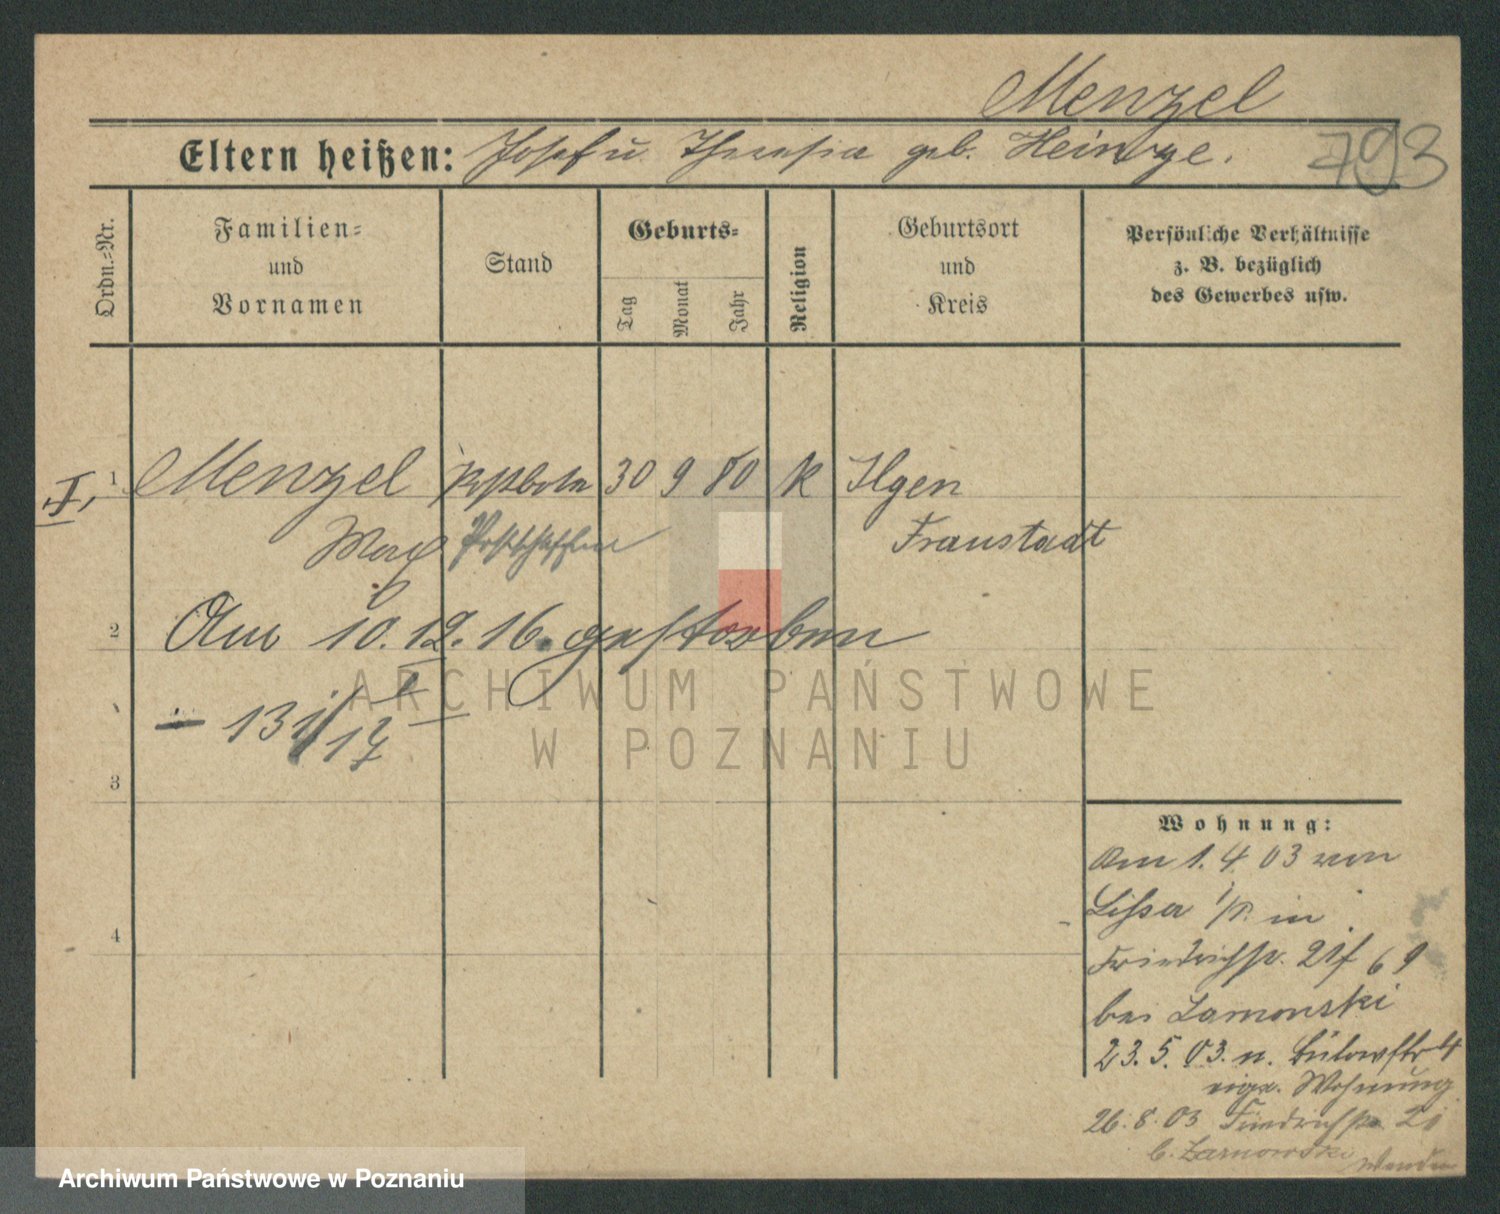 Menzel
Eltern heißen: Josef u. Theresia geb. Heinze.
793
Ordn.-Nr.
Familien-
und
Vornamen
Stand
Geburts-
Tag
Monat
Jahr
Religion
Geburtsort
und
Kreis
Persönliche Verhältnisse
z. B. bezüglich
des Gewerbes usw.
I,
1 Menzel Postbote 30 9 80 k Ilgen
Max Postschaffner Fraustadt
2 Am 10. 12. 16. gestorben
– 131/17
3
4
Wohnung:
Am 1. 4 03 von
Lissa i/P. in
Friedrichstr. 21
bei Zarnowski
23. 5. 03. n. Bülowstr 4
eigne. Wohnung
26. 8. 03 Friedrichstr. 21
b. Zarnowski
wenden
ARCHIWUM PAŃSTWOWE
W POZNANIU
Archiwum Państwowe w Poznaniu